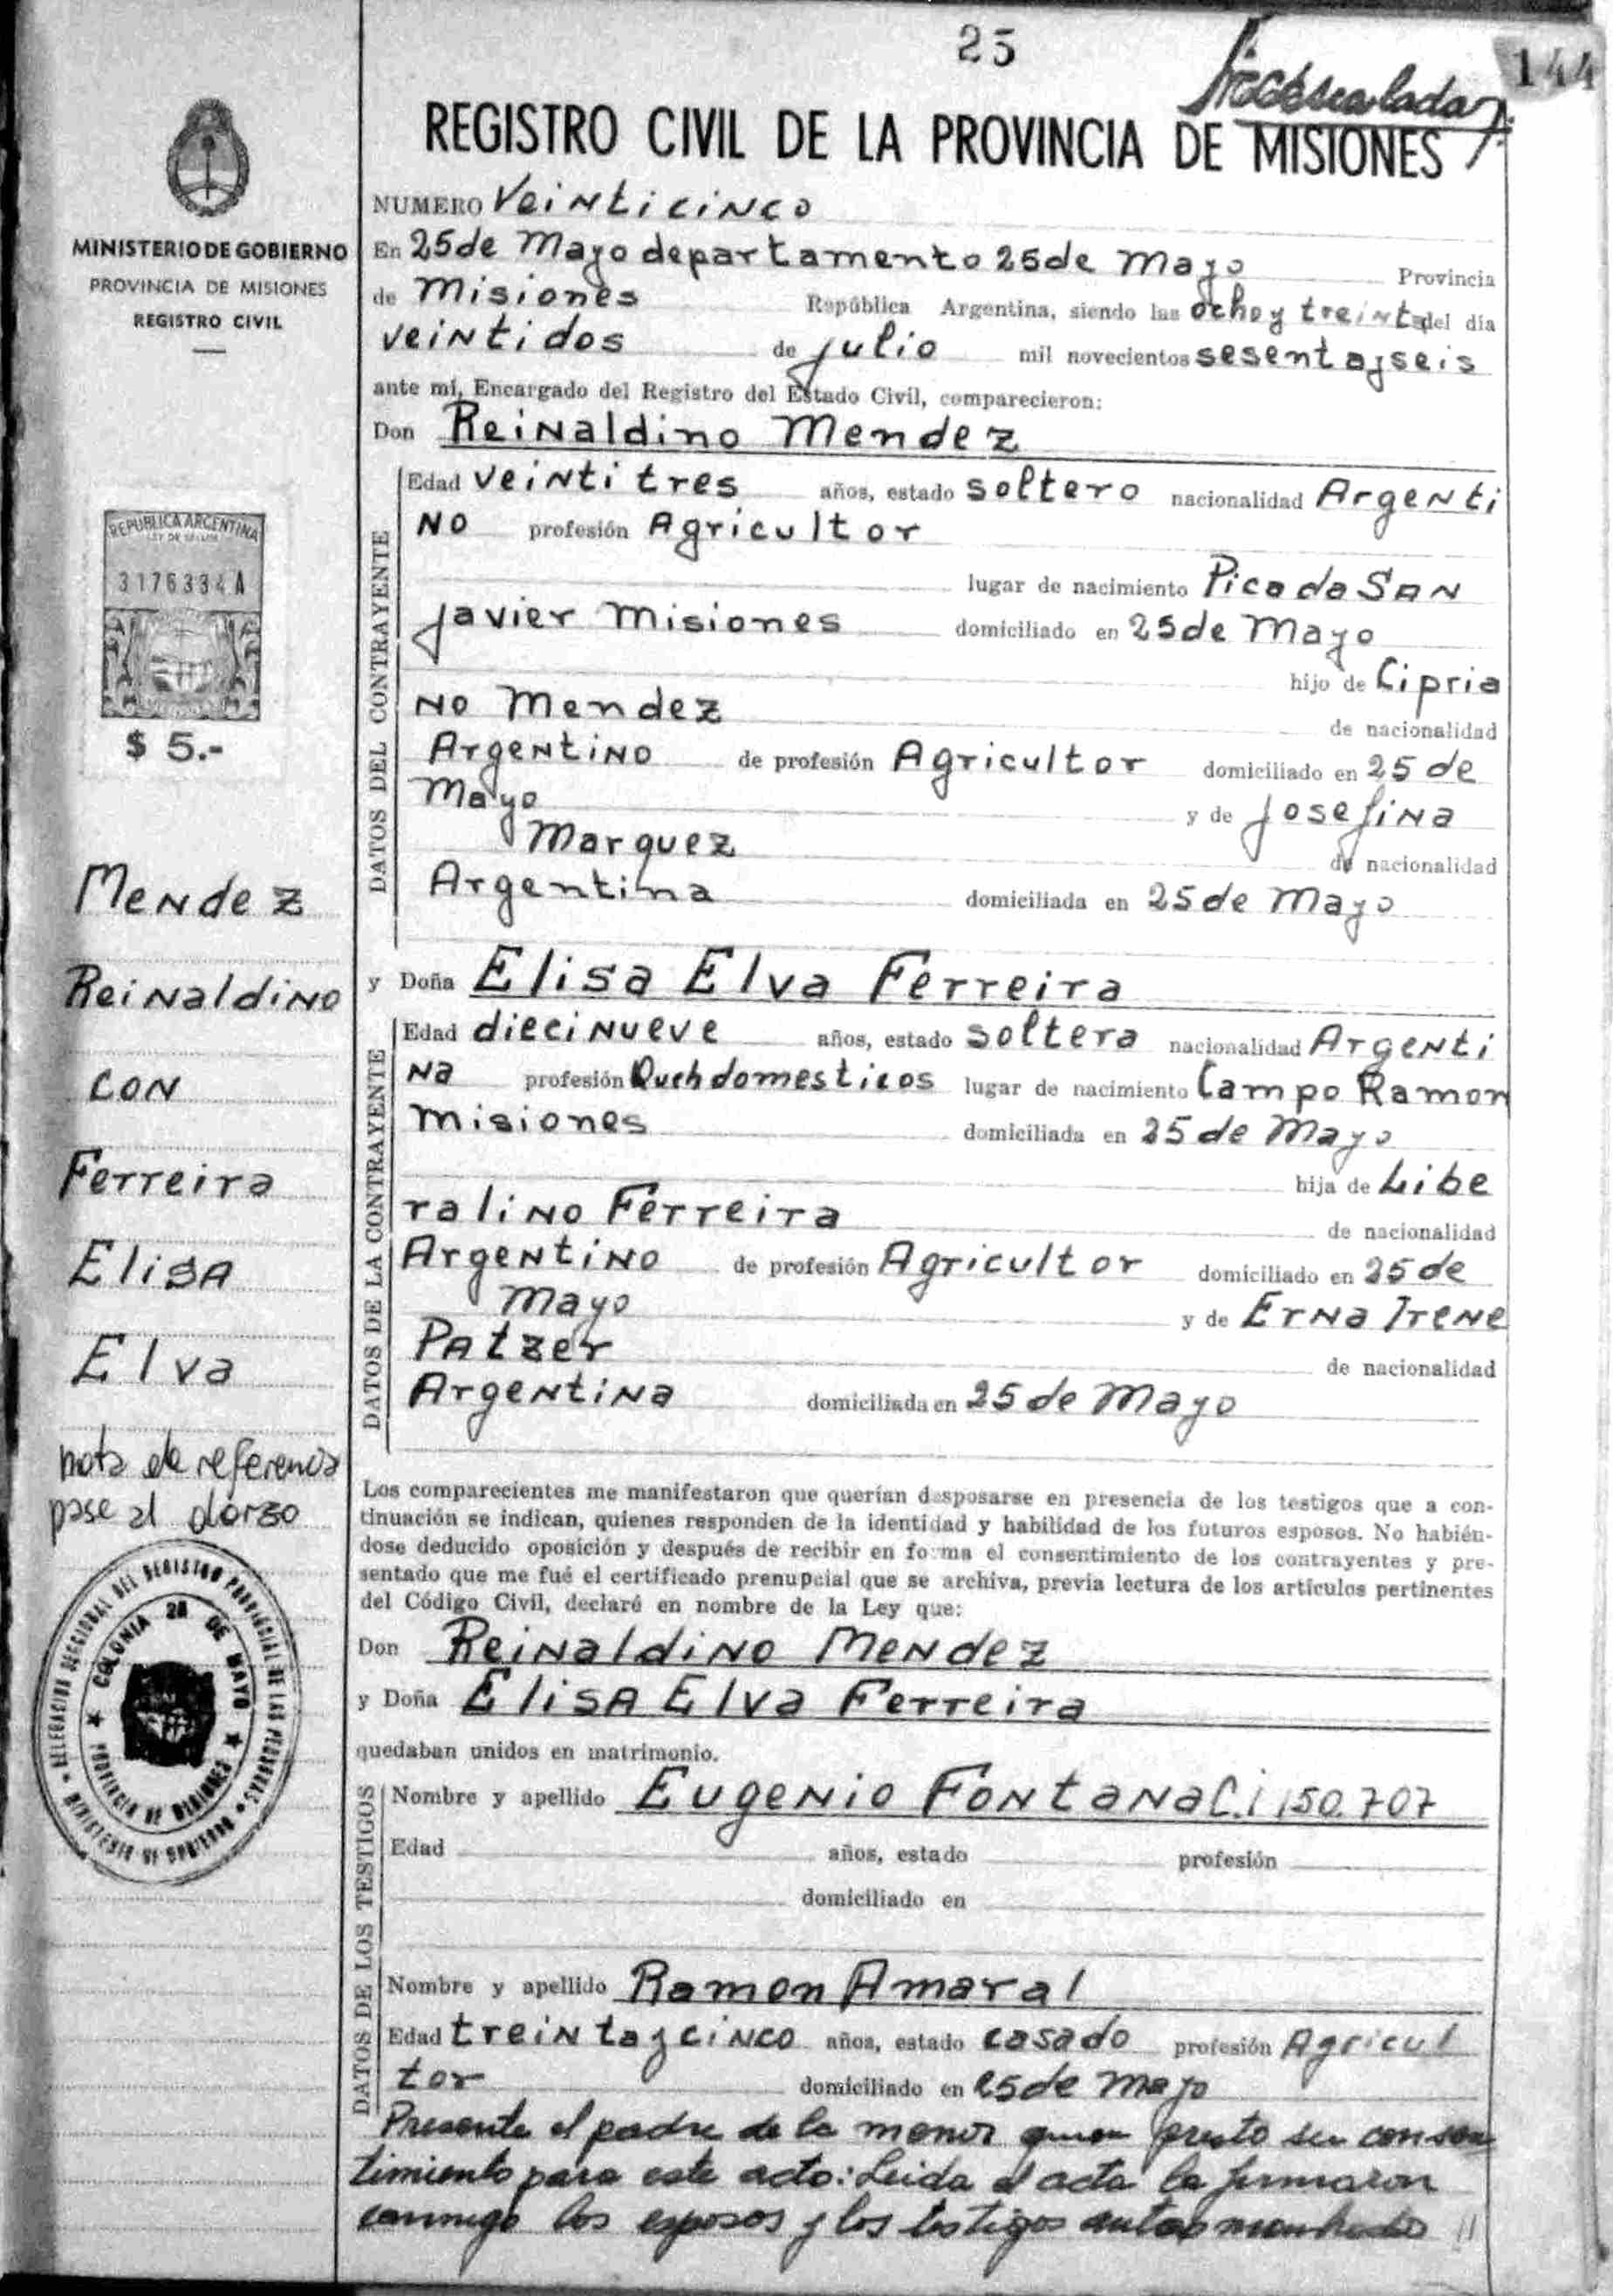 25
144
REGISTRO CIVIL DE LA PROVINCIA DE MISIONES
MINISTERIO DE GOBIERNO
PROVINCIA DE MISIONES
REGISTRO CIVIL
REPUBLICA ARGENTINA
3176334 A
$ 5.-
Mendez
Reinaldino
con
Ferreira
Elisa
Elva
nota de referencia
pase al dorso
DELEGACION SECCIONAL DEL REGISTRO PROVINCIAL DE LAS PERSONAS
MINISTERIO DE GOBIERNO
COLONIA 25 DE MAYO
PROVINCIA DE MISIONES
NUMERO Veinticinco
En 25 de Mayo departamento 25 de Mayo Provincia
de Misiones República Argentina, siendo las ocho y treinta del día
veintidos de julio mil novecientos sesenta y seis
ante mí, Encargado del Registro del Estado Civil, comparecieron:
Don Reinaldino Mendez
DATOS DEL CONTRAYENTE
Edad veinti tres años, estado soltero nacionalidad Argenti
no profesión Agricultor
lugar de nacimiento Picada San
Javier Misiones domiciliado en 25 de Mayo
hijo de Cipria
no Mendez de nacionalidad
Argentino de profesión Agricultor domiciliado en 25 de
Mayo y de Josefina
Marquez de nacionalidad
Argentina domiciliada en 25 de Mayo
y Doña Elisa Elva Ferreira
DATOS DE LA CONTRAYENTE
Edad diecinueve años, estado soltera nacionalidad Argenti
na profesión Queh domesticos lugar de nacimiento Campo Ramon
Misiones domiciliada en 25 de Mayo
hija de Libe
ralino Ferreira de nacionalidad
Argentino de profesión Agricultor domiciliado en 25 de
Mayo y de Erna Irene
Patzer de nacionalidad
Argentina domiciliada en 25 de Mayo
Los comparecientes me manifestaron que querían desposarse en presencia de los testigos que a con-
tinuación se indican, quienes responden de la identidad y habilidad de los futuros esposos. No habién-
dose deducido oposición y después de recibir en forma el consentimiento de los contrayentes y pre-
sentado que me fué el certificado prenupcial que se archiva, previa lectura de los artículos pertinentes
del Código Civil, declaré en nombre de la Ley que:
Don Reinaldino Mendez
y Doña Elisa Elva Ferreira
quedaban unidos en matrimonio.
DATOS DE LOS TESTIGOS
Nombre y apellido Eugenio Fontana C.i 150.707
Edad años, estado profesión
domiciliado en
Nombre y apellido Ramon Amaral
Edad treinta y cinco años, estado casado profesión Agricul
tor domiciliado en 25 de Mayo
Presente el padre de la menor quien presto su consen
timiento para este acto: Leida el acta la firmaron
conmigo los esposos y los testigos antes